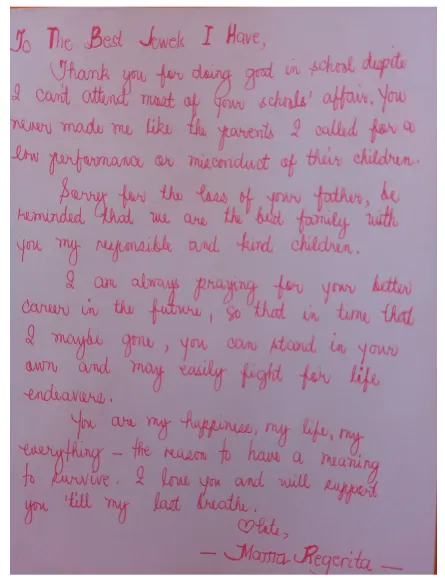 To The Best Jewels I Have,
Thank you for doing good in school despite
I can't attend most of your schools' affair. You
never made me like the parents I called for a
low performance or misconduct of their children.
Sorry for the loss of your father, be
reminded that we are the best family with
you my responsible and kind children.
I am always praying for your better
career in the future, so that in time that
I maybe gone, you can stand in your
own and may easily fight for life
endeavors.
You are my happiness, my life, my
everything – the reason to have a meaning
to survive. I love you and will support
you 'till my last breathe.
– Mama Regerita –